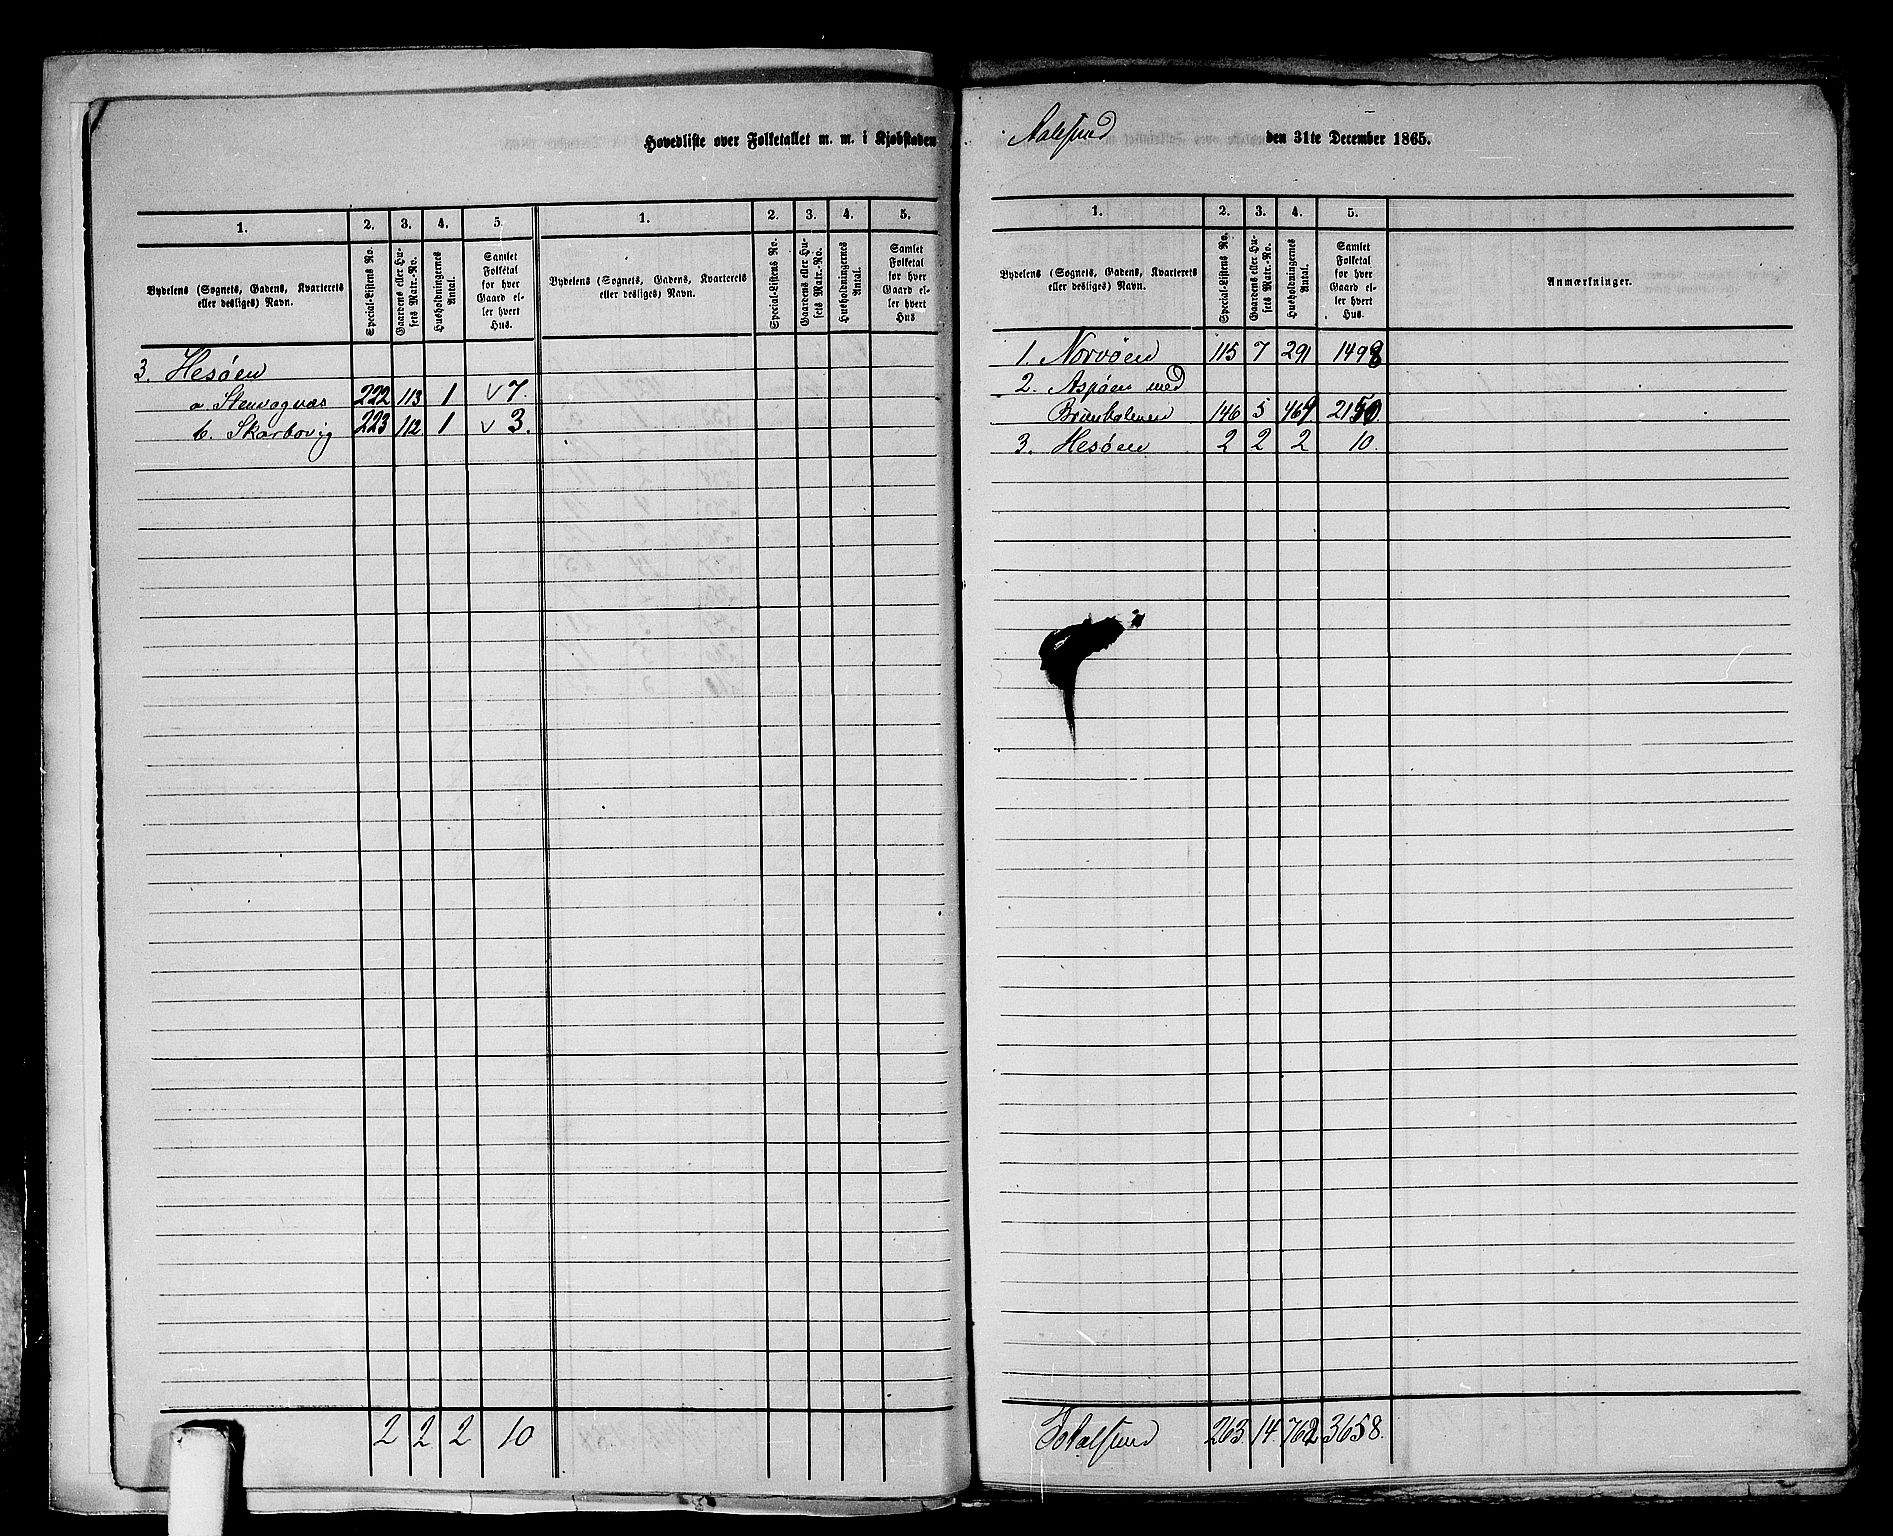 Hovedliste over Folketallet m. m. i Kjøbstaden Aalesund den 31te December 1865.
1. 2. 3. 4. 5. 1. 2. 3. 4. 5.
Bydelens (Sognets, Gadens, Kvarterets eller desliges) Navn. Special-Listens No. Gaardens eller Husets Matr.-No. Husholdningernes Antal. Samlet Folketal for hver Gaard eller hvert Hus.
Bydelens (Sognets, Gadens, Kvarterets eller desliges) Navn. Special-Listens No. Gaardens eller Husets Matr.-No. Husholdningernes Antal. Samlet Folketal for hver Gaard eller hvert Hus
3. Hesøen
a. Stenvagnæs 222 113 1 v 7.
b. Skarbovig 223 112. 1 v 3.
2 2 2 10
1. 2. 3. 4. 5.
Bydelens (Sognets, Gadens, Kvarterets eller desliges) Navn. Special-Listens No. Gaardens eller Husets Matr.-No. Husholdningernes Antal. Samlet Folketal for hver Gaard eller hvert Hus. Anmærkninger.
1. Norvøen 115 7 291 1498
2. Aspøen med
146 5 469 2150.
3. Hesøen 2 2 2 10.
Totalsum 263. 14. 762 3658.